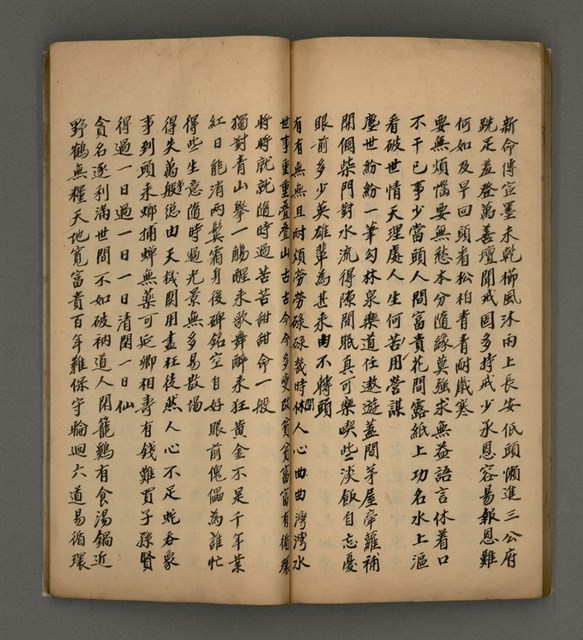 新命傳宣墨未乾櫛風沐雨上長安低頭懶進三公府
跣足羞登萬善壇聞戒固多持戒少承恩容易報恩難
何如及早回頭看松柏青青耐歲寒
要無煩惱要無愁本分隨緣莫強求無益語言休着口
不干已事少當頭人間富貴花間露紙上功名水上漚
看破世情天理處人生何苦用營謀
塵世紛紛一筆勾林泉樂道任遨遊蓋間茅屋牽蘿補
開個柴門對水流得陳閒眠真可樂喫些淡飯自忘憂
眼前多少英雄輩為甚來由不轉頭
有有無無且耐煩勞勞碌碌幾時休閒人心曲曲灣灣水
世事重重叠叠山古古今今多變改貧貧富富有循環
將將就就隨時過苦苦甜甜命一般
獨對青山舉一觴醒來歌舞醉來狂黃金不是千年業
紅日能消兩鬢霜身後碑銘空自好眼前傀儡為誰忙
得些生意隨時過光景無多易散場
得失萬般總由天機關用盡枉徒然人心不足蛇吞象
事到頭來螂捕蟬無藥可延卿相壽有錢難買子孫賢
得過一日過一日一日清閒一日仙
貪名逐利滿世間不如破衲道人閑籠鷄有食湯鍋近
野鶴無糧天地寬富貴百年難保守輪迴六道易循環